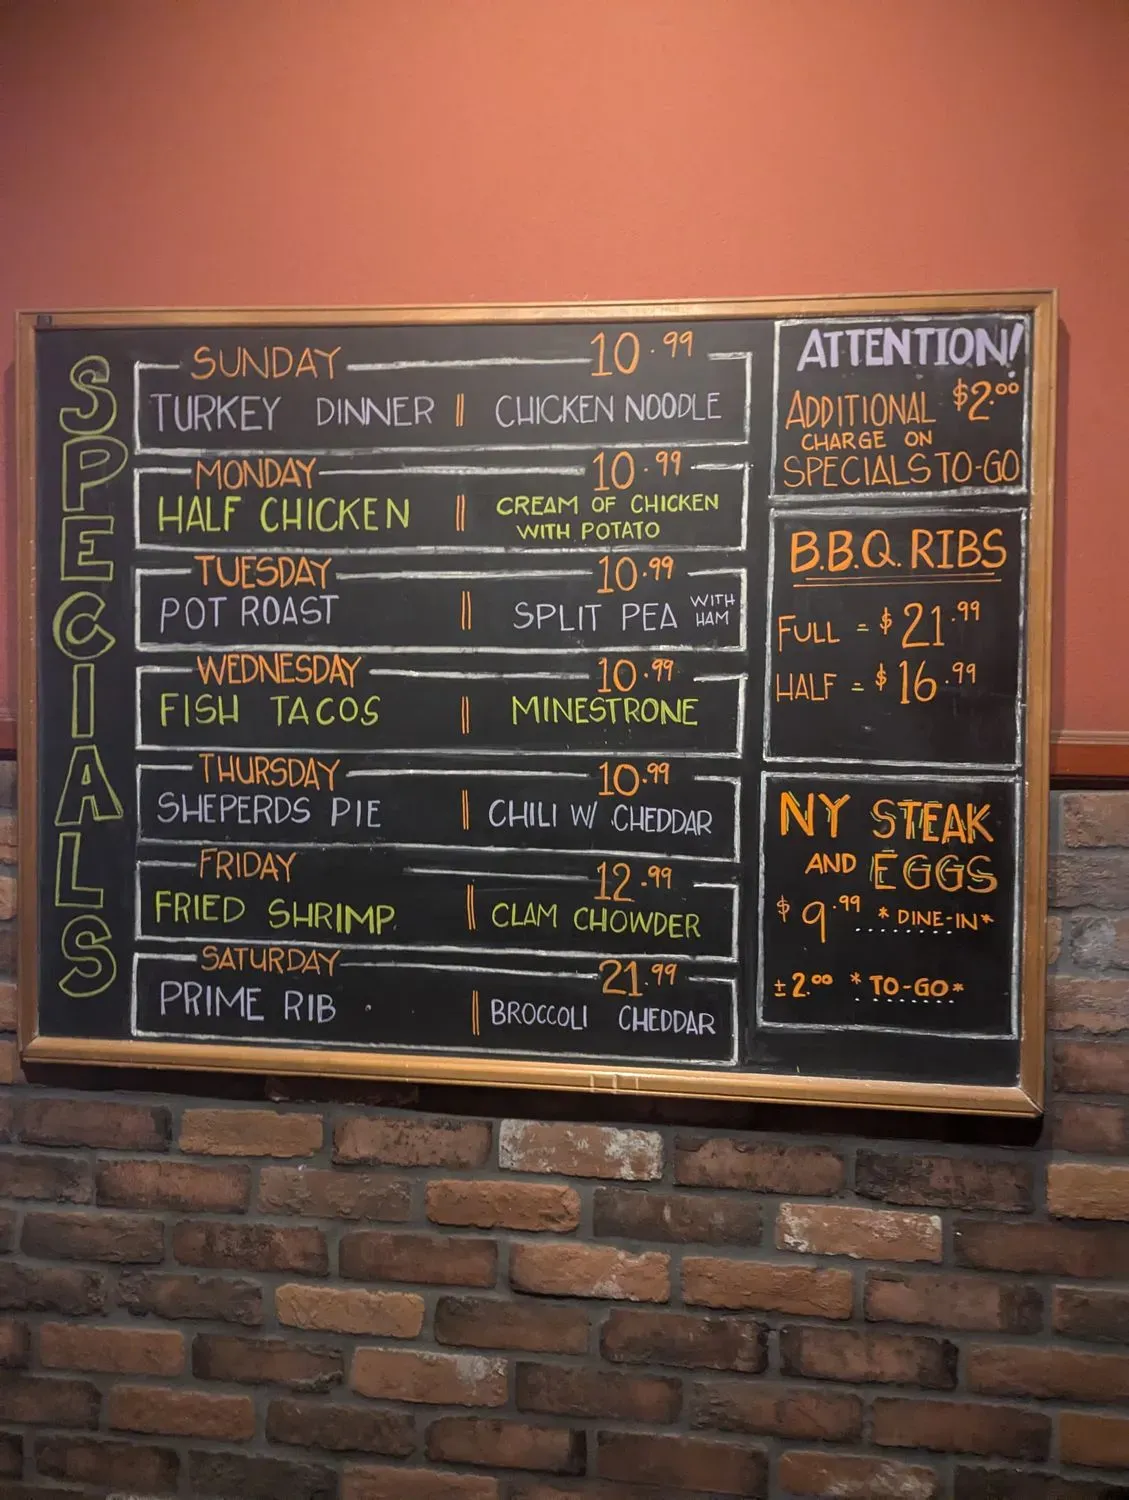 SPECIALS
SUNDAY 10.99
TURKEY DINNER || CHICKEN NOODLE
MONDAY 10.99
HALF CHICKEN || CREAM OF CHICKEN
WITH POTATO
TUESDAY 10.99
POT ROAST || SPLIT PEA WITH HAM
WEDNESDAY 10.99
FISH TACOS || MINESTRONE
THURSDAY 10.99
SHEPERDS PIE || CHILI W/ CHEDDAR
FRIDAY 12.99
FRIED SHRIMP || CLAM CHOWDER
SATURDAY 21.99
PRIME RIB || BROCCOLI CHEDDAR
ATTENTION!
ADDITIONAL $2.00
CHARGE ON
SPECIALS TO-GO
B.B.Q. RIBS
FULL = $21.99
HALF = $16.99
NY STEAK
AND EGGS
$9.99 *DINE-IN*
±2.00 *TO-GO*